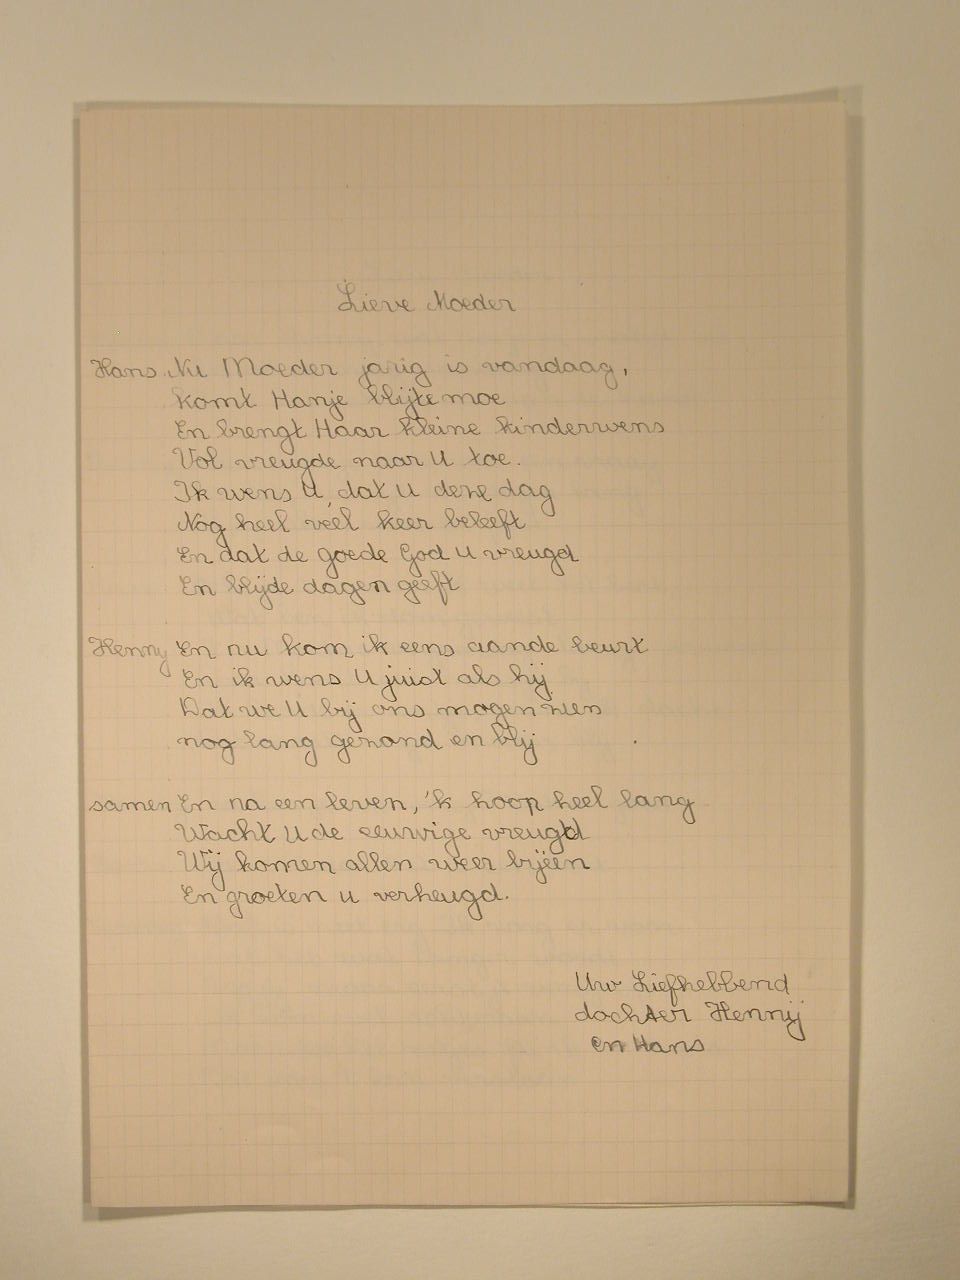 Lieve Moeder
Hans. Nu Moeder jarig is vandaag,
komt Hanje blijte moe
En brengt Haar kleine kinderwens
Vol vreugde naar U toe.
Ik wens U, dat U deze dag
Nog heel véél keer beleeft
En dat de goede God U vreugd
En blijde dagen geeft
Henny En nu kom ik eens aande beurt
En ik wens U juist als hij
Dat we U bij ons mogen zien
nog lang gezond en blij
samen En na een leven, 'k hoop heel lang
Wacht U de eeuwige vreugd
Wij komen allen weer bijeen
En groeten u verheugd.
Uw Liefhebbend
dochter Hennij
en Hans